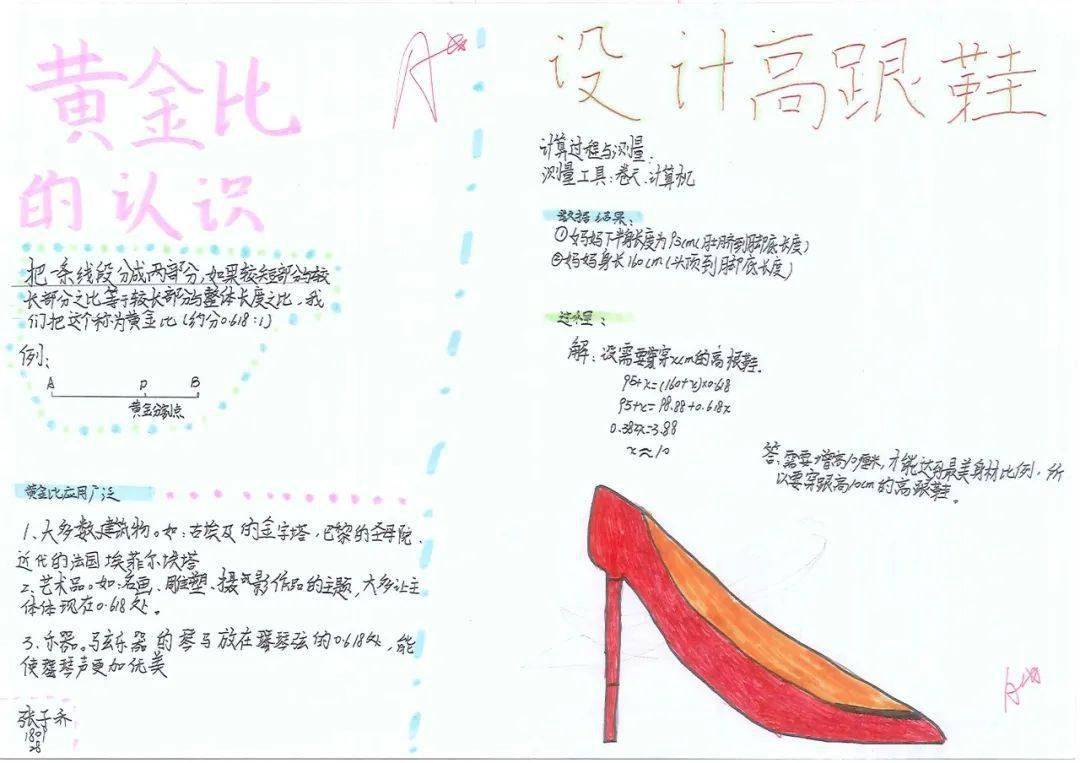 黄金比
的认识
把一条线段分成两部分,如果较短部分与较
长部分之比等于较长部分与整体长度之比,我
们把这个称为黄金比(约分0.618:1)
例:
A P B
黄金分割点
黄金比应用广泛
1、大多数建筑物。如:古埃及的金字塔,巴黎的圣母院、
近代的法国埃菲尔铁塔
2、艺术品。如:名画、雕塑、摄影作品的主题,大多让主
体体现在0.618处。
3、乐器。弦乐器的琴马放在琴弦的0.618处,能
使琴声更加优美
张子齐
1801
28
A
设计高跟鞋
计算过程与测量:
测量工具:卷尺、计算机
数据结果:
①妈妈下半身长度为95cm(肚脐到脚底长度)
②妈妈身长160cm(头顶到脚底长度)
过程:
解:设需要穿xcm的高跟鞋。
95+x=(160+x)×0.618
95+x=98.88+0.618x
0.382x=3.88
x≈10
答:需要增高10厘米,才能达到最美身材比例,所
以要穿跟高10cm的高跟鞋。
A